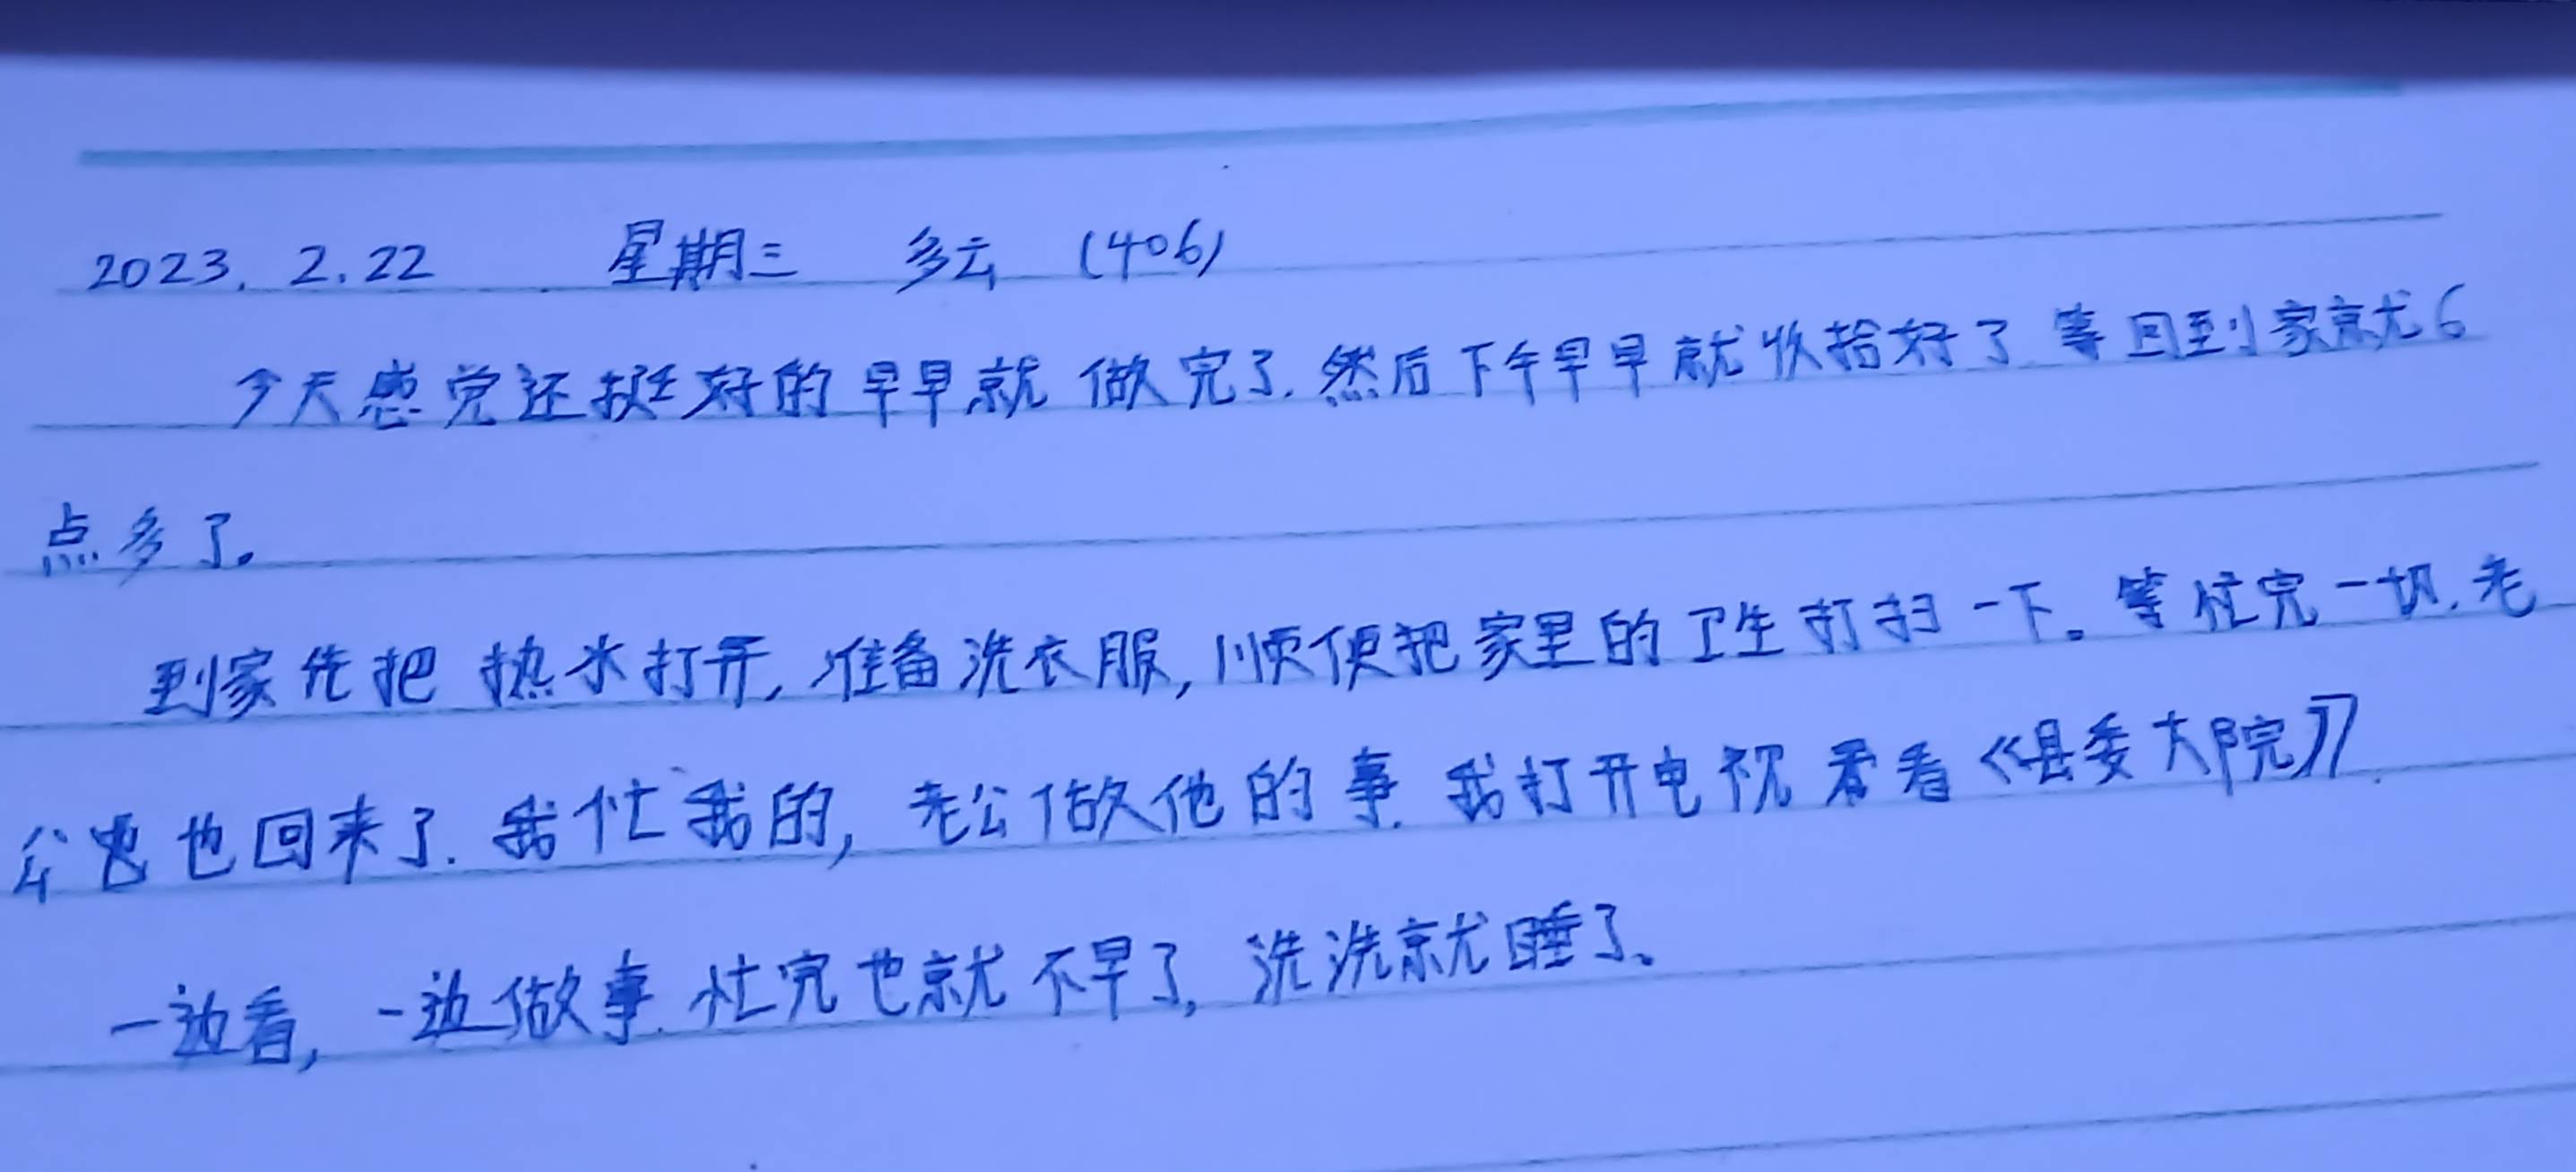 2023. 2.22 星期三 多云 (406)
今天感觉还挺好的早早就做完了.然后下午早早就收拾好了.等回到家就6
点多了。
到家先把热水打开,准备洗衣服,顺便把家里的卫生打扫一下。等忙完一切.老
公也回来了.我忙我的,老公做他的事.我打开电视看看《县委大院》.
一边看,一边做事.忙完也就不早了,洗洗就睡了。